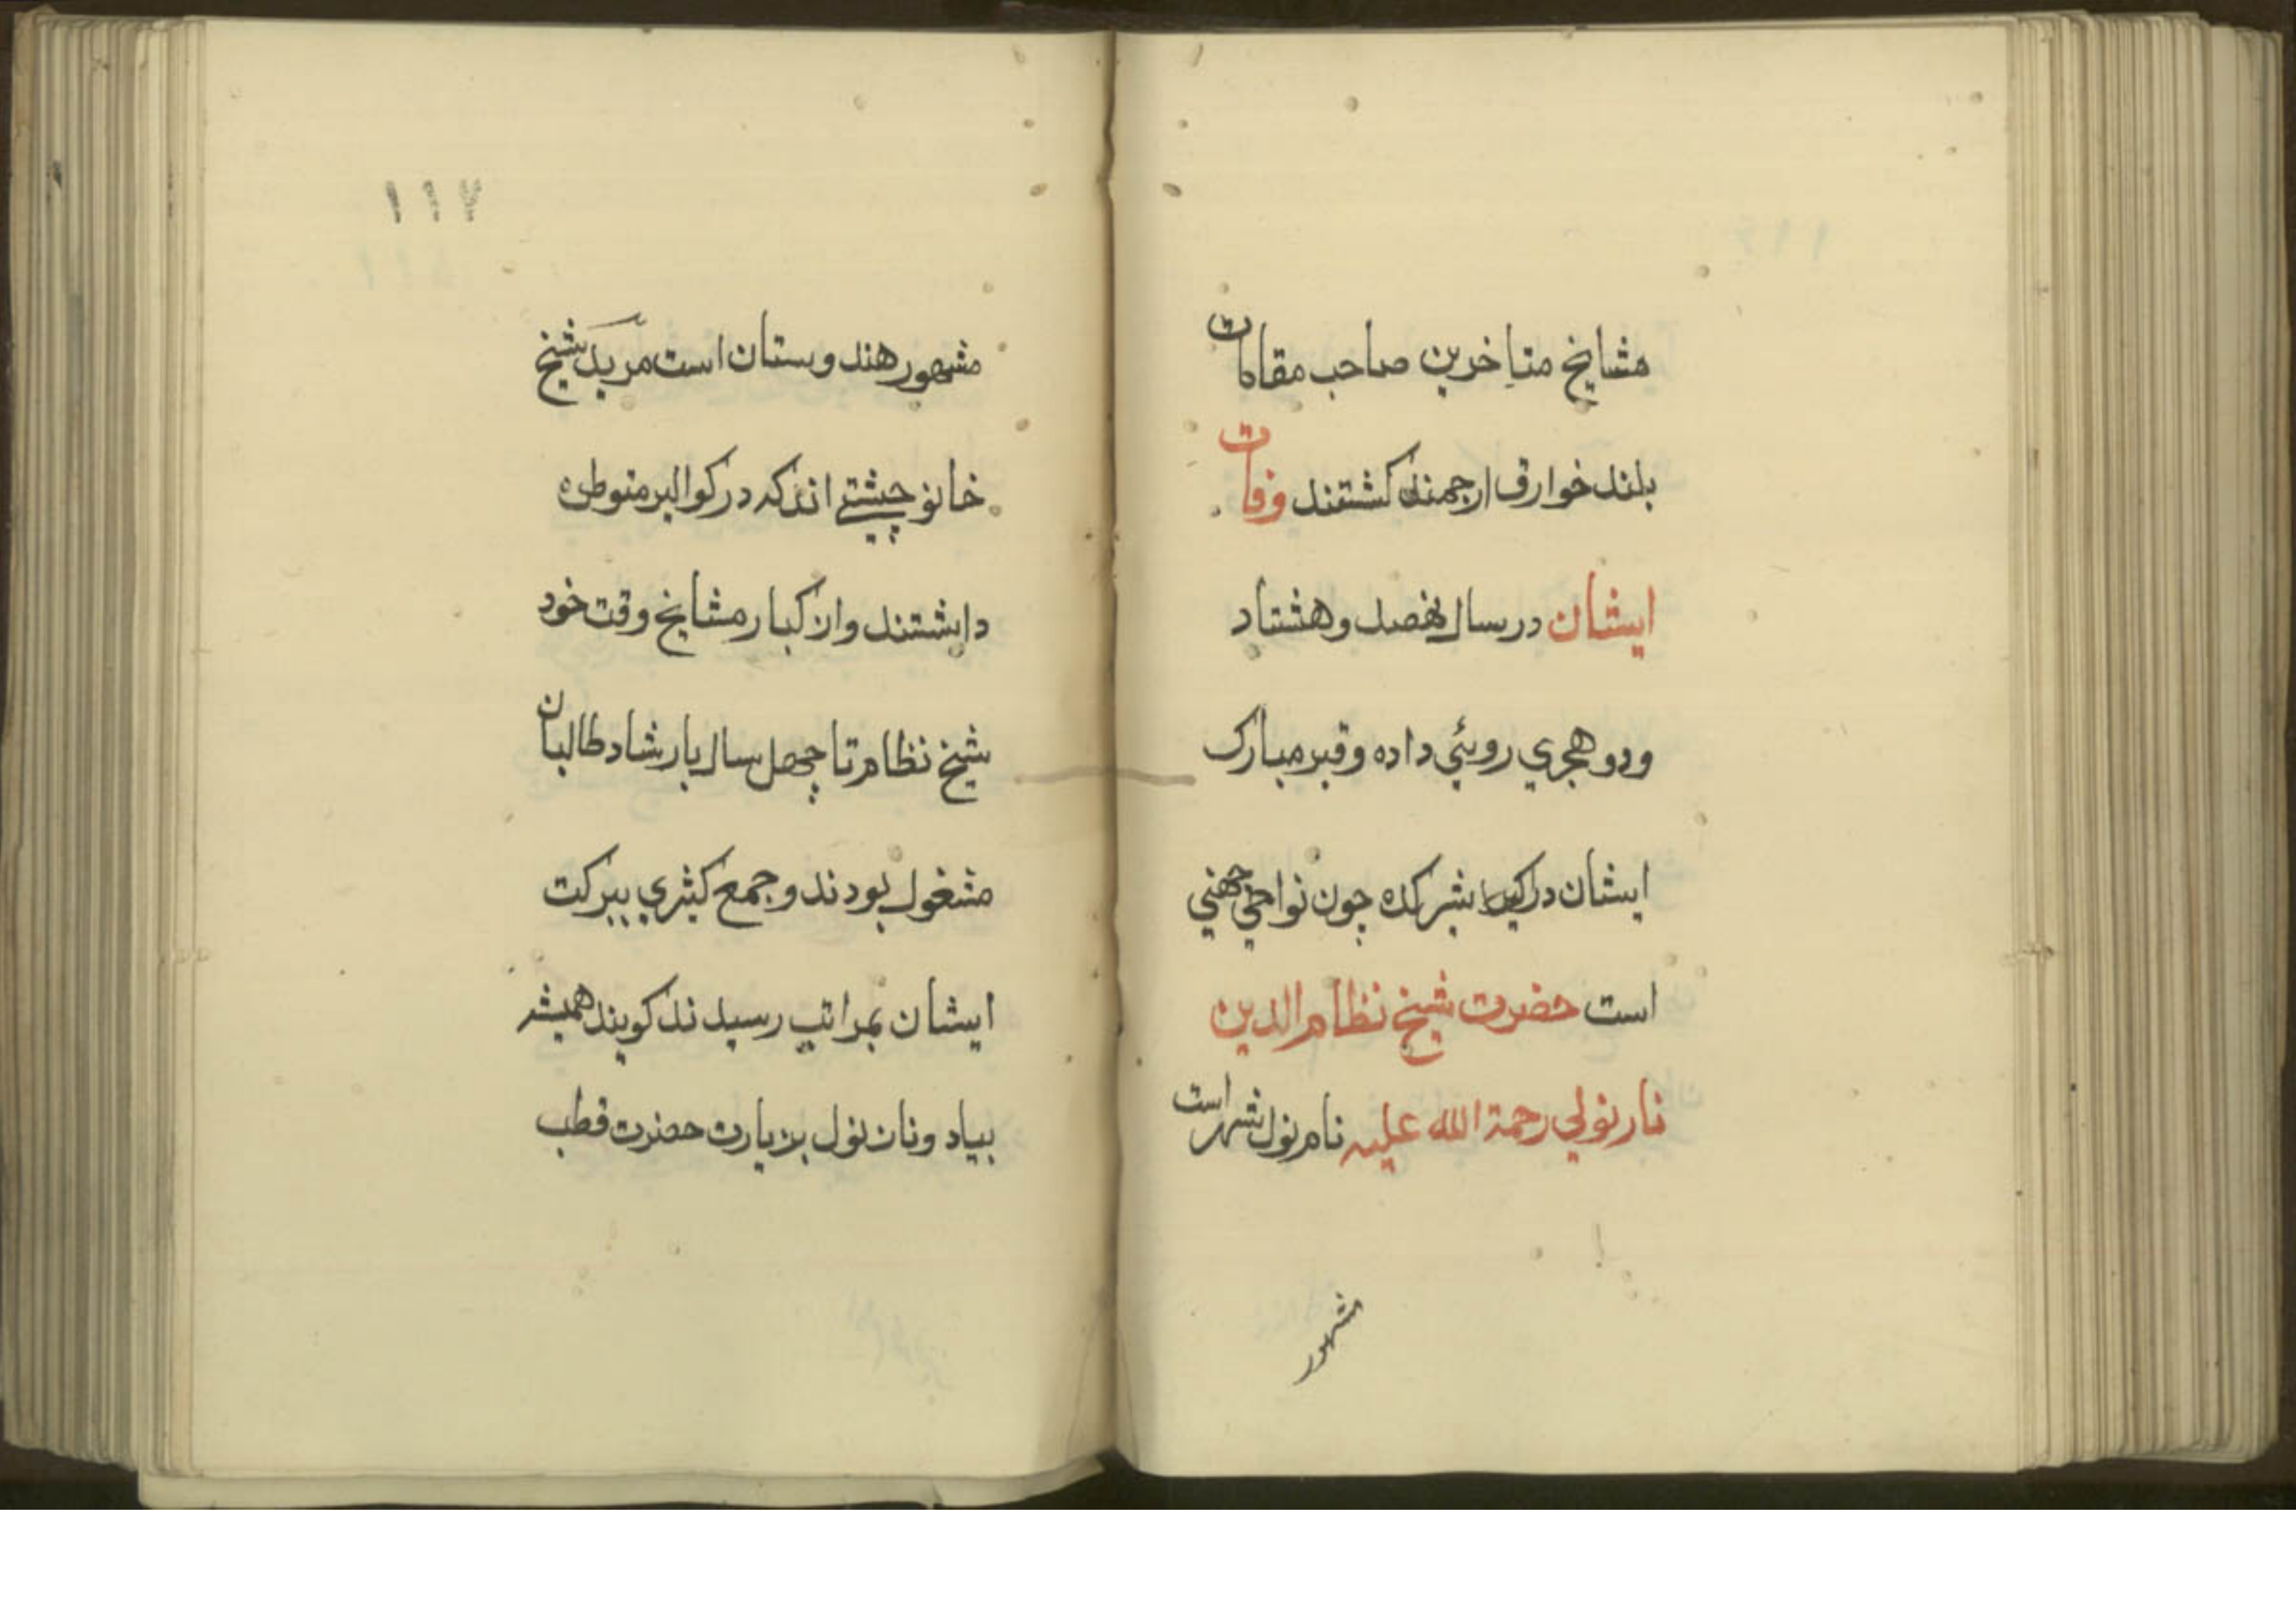 مشایخ متاخرین صاحب مقامات
بلند خوارق ارجمند کشتند وفات
ایشان در سال نهصد و هشتاد
ودو هجري روئي داده وقبر مبارک
ایشان در چون نواحي
است حضرت شیخ نظام الدین
نارنولي رحمة الله علیه نام نول شهر است
مشهور
١١٧
مشهور هندوستان است مرید شیخ
خانو چشتے اند که در کوالیر متوطن
داشتند واز کبار مشایخ وقت خود
شیخ نظام تا چهل سال بارشاد طالبان
مشغول بودند و جمع کثیري ببرکت
ایشان بمراتب رسیدند کویند همیشه
بیاد ونان نول بزیارت حضرت قطب